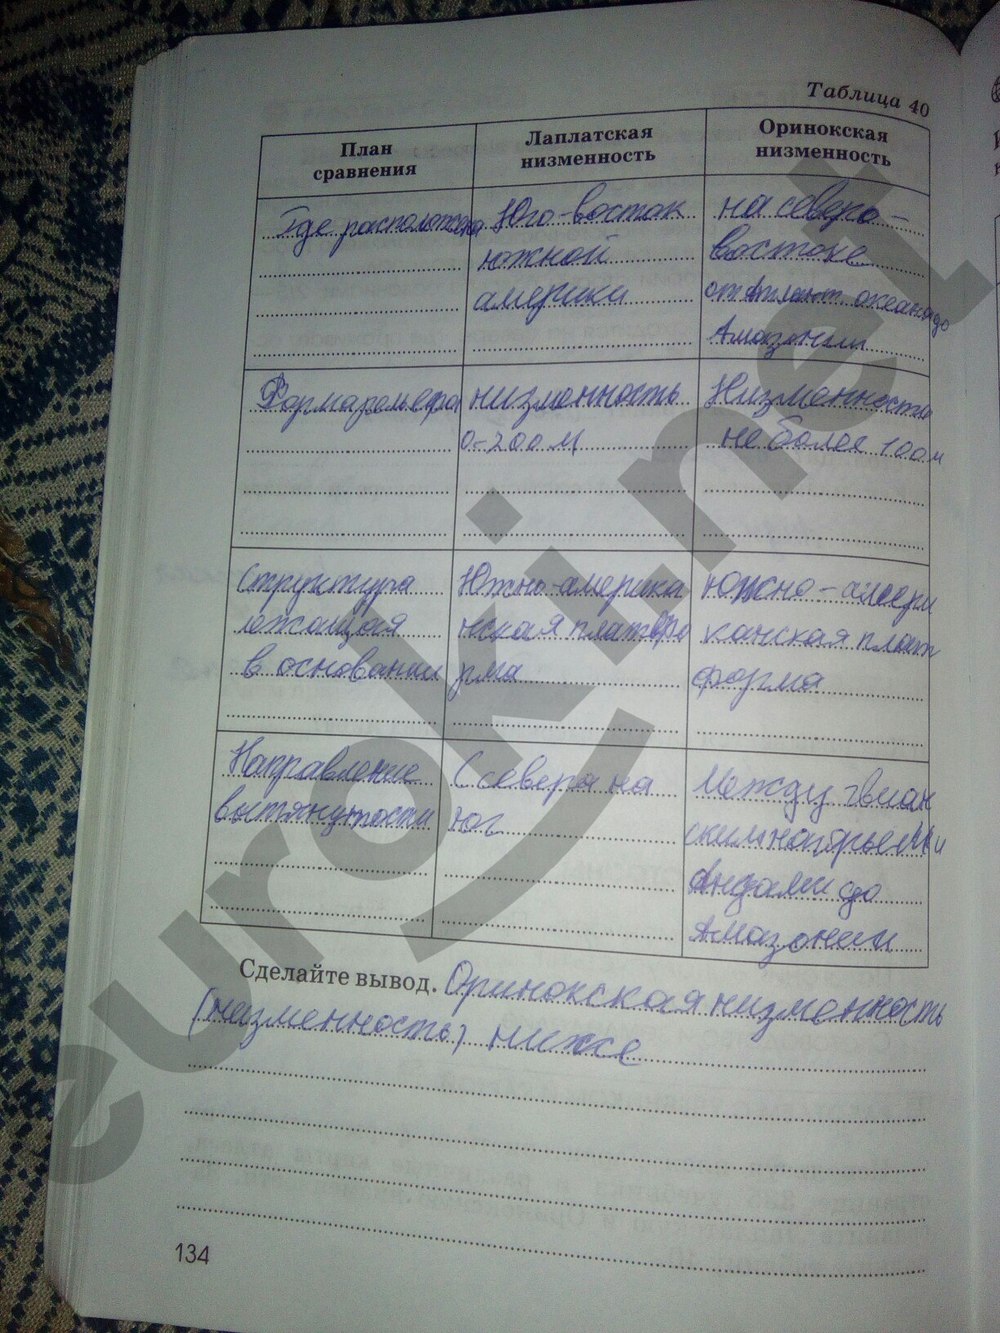 Таблица 40
План сравнения
Лаплатская низменность
Оринокская низменность
Где расположена
Юго-восток
южной
америки
на северо-
востоке
от Атлант океана до
Амазонии
Форма рельефа
низменность
0-200 м
Низменность
не более 100 м
Структура
лежащая
в основании
Южно-америка
нская платфо
рма
Южно-амери
канская плат
форма
Направление
вытянутости
С севера на
юг
Между гвиан
ским нагорьем и
Андами до
Амазонии
Сделайте вывод. Оринокская низменность
(низменность) ниже
134
euroki.net